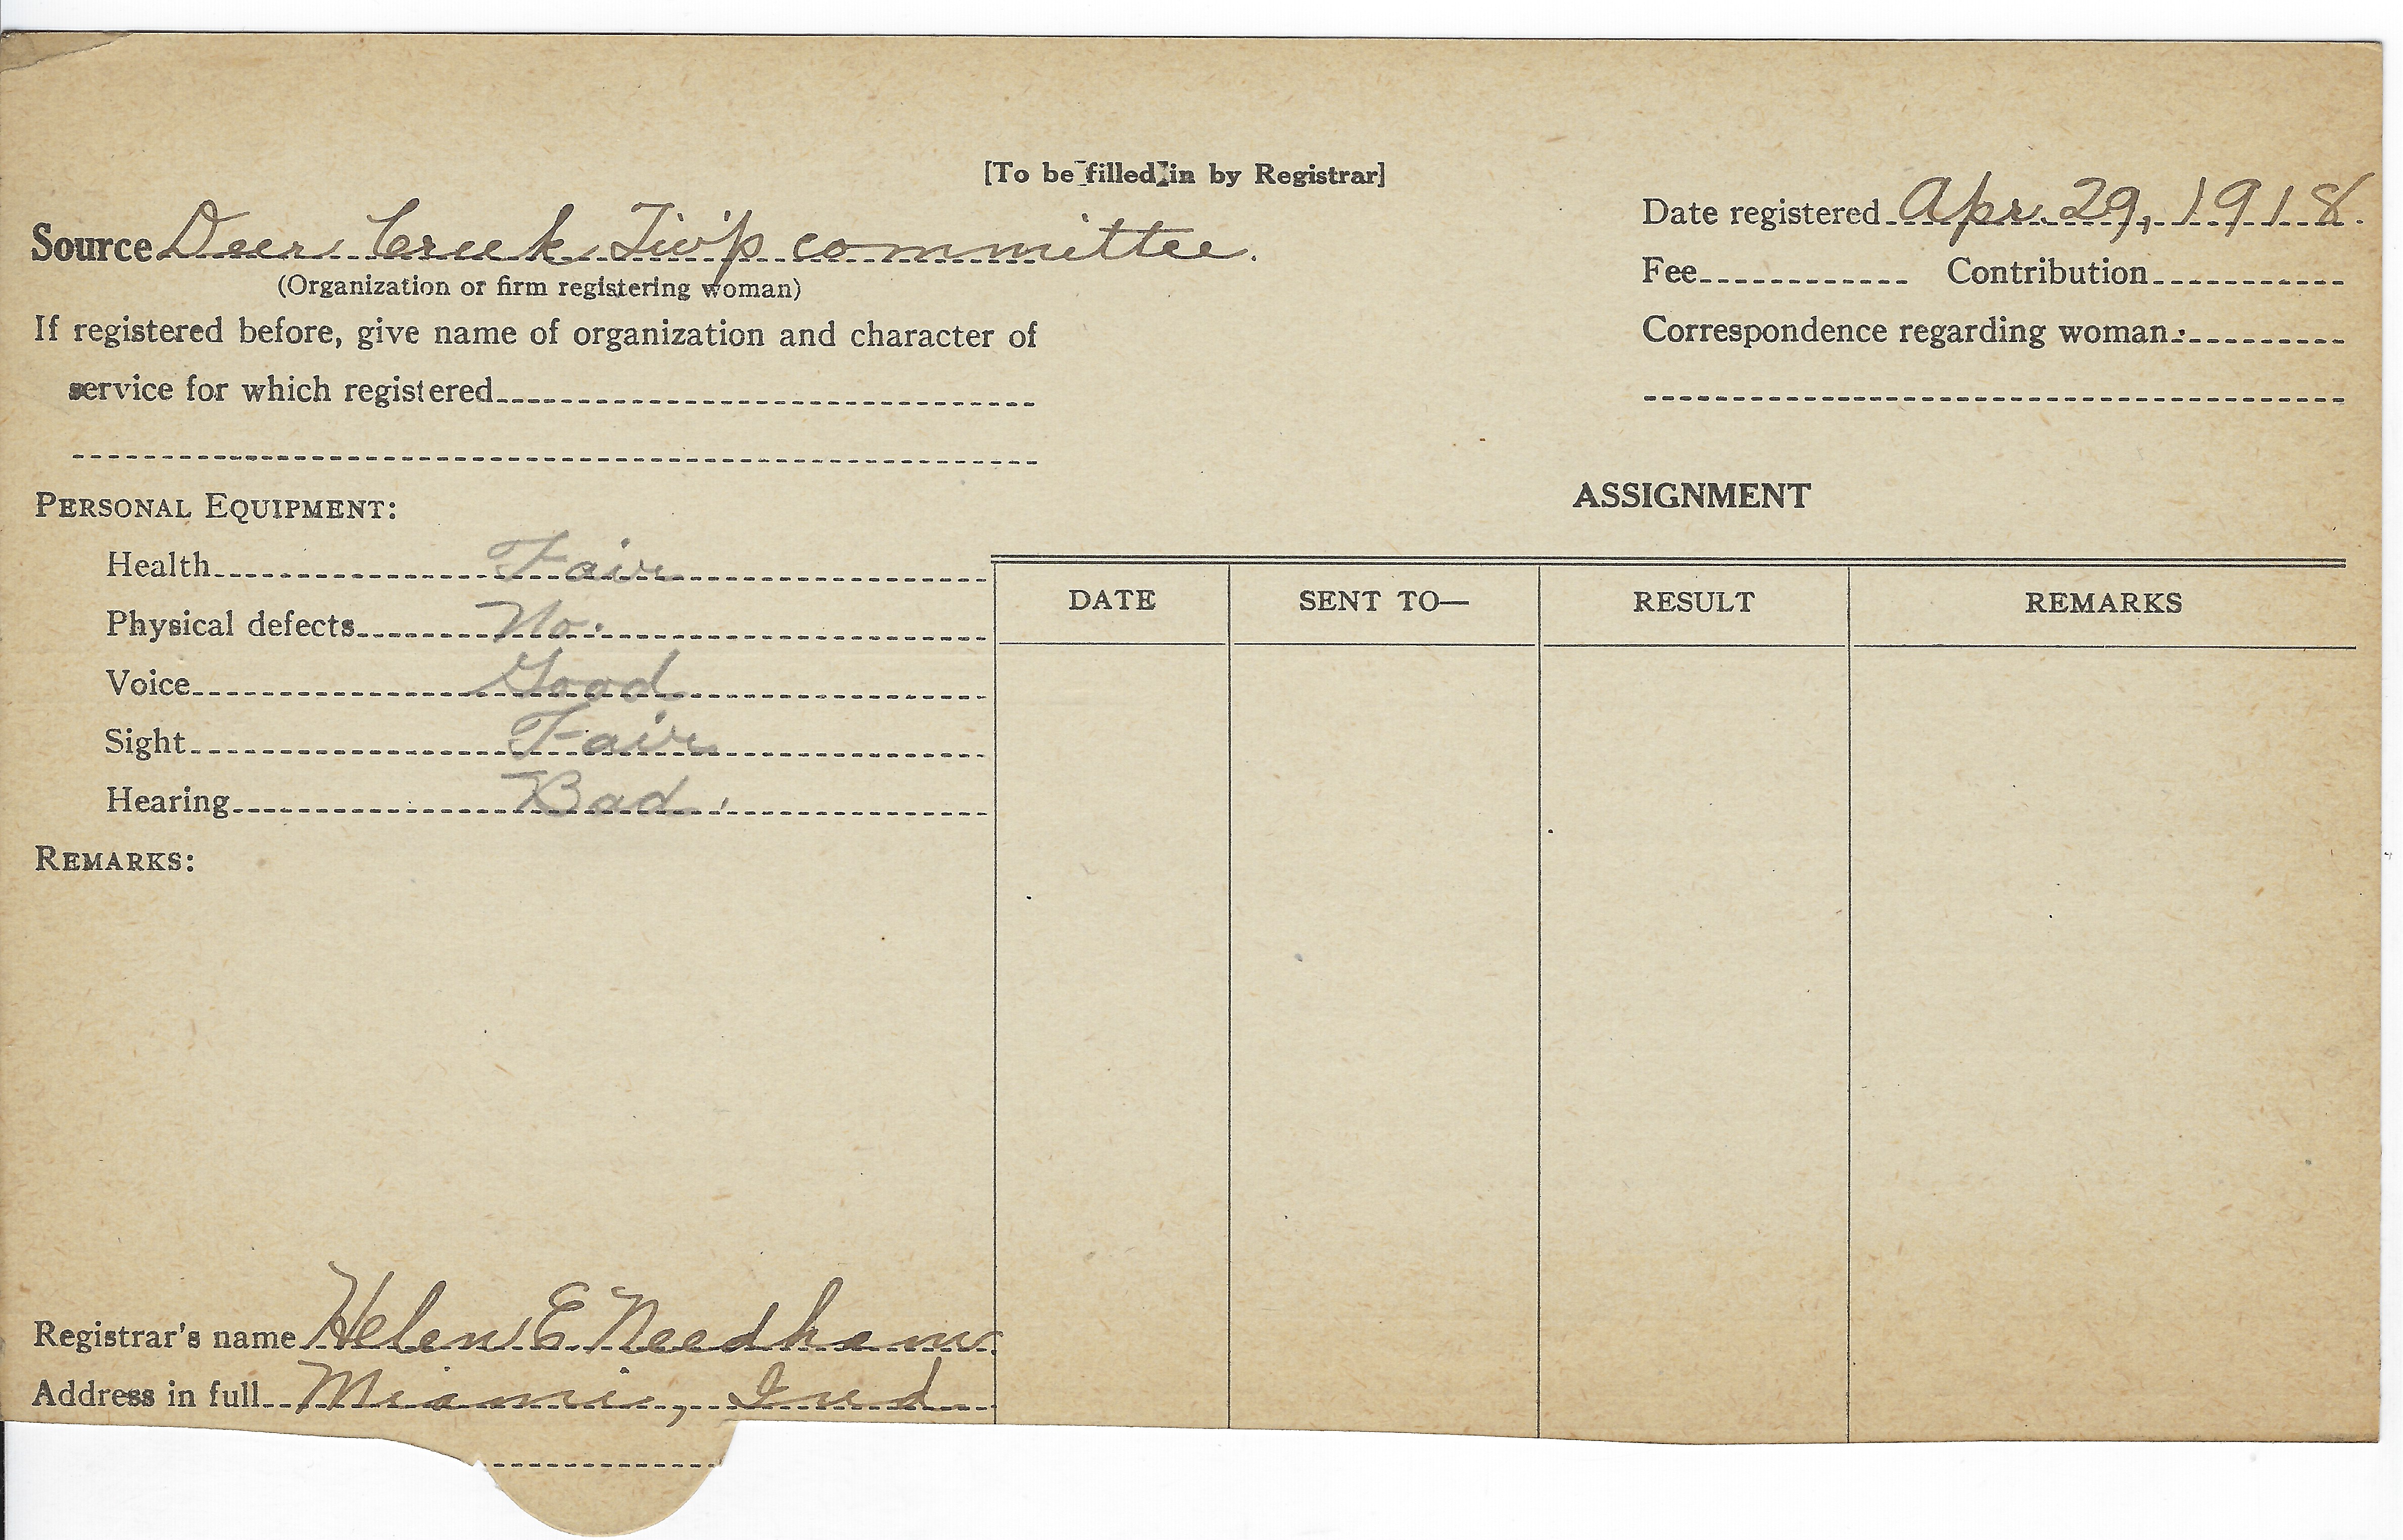 [To be filled in by Registrar]
Source Deer Creek Tw'p committee.
(Organization or firm registering woman)
If registered before, give name of organization and character of
service for which registered
Date registered Apr. 29, 1918.
Fee Contribution
Correspondence regarding woman:
PERSONAL EQUIPMENT:
Health Fair
Physical defects No.
Voice Good
Sight Fair
Hearing Bad.
REMARKS:
ASSIGNMENT
DATE SENT TO— RESULT REMARKS
Registrar's name Helen E Needham
Address in full Miami, Ind